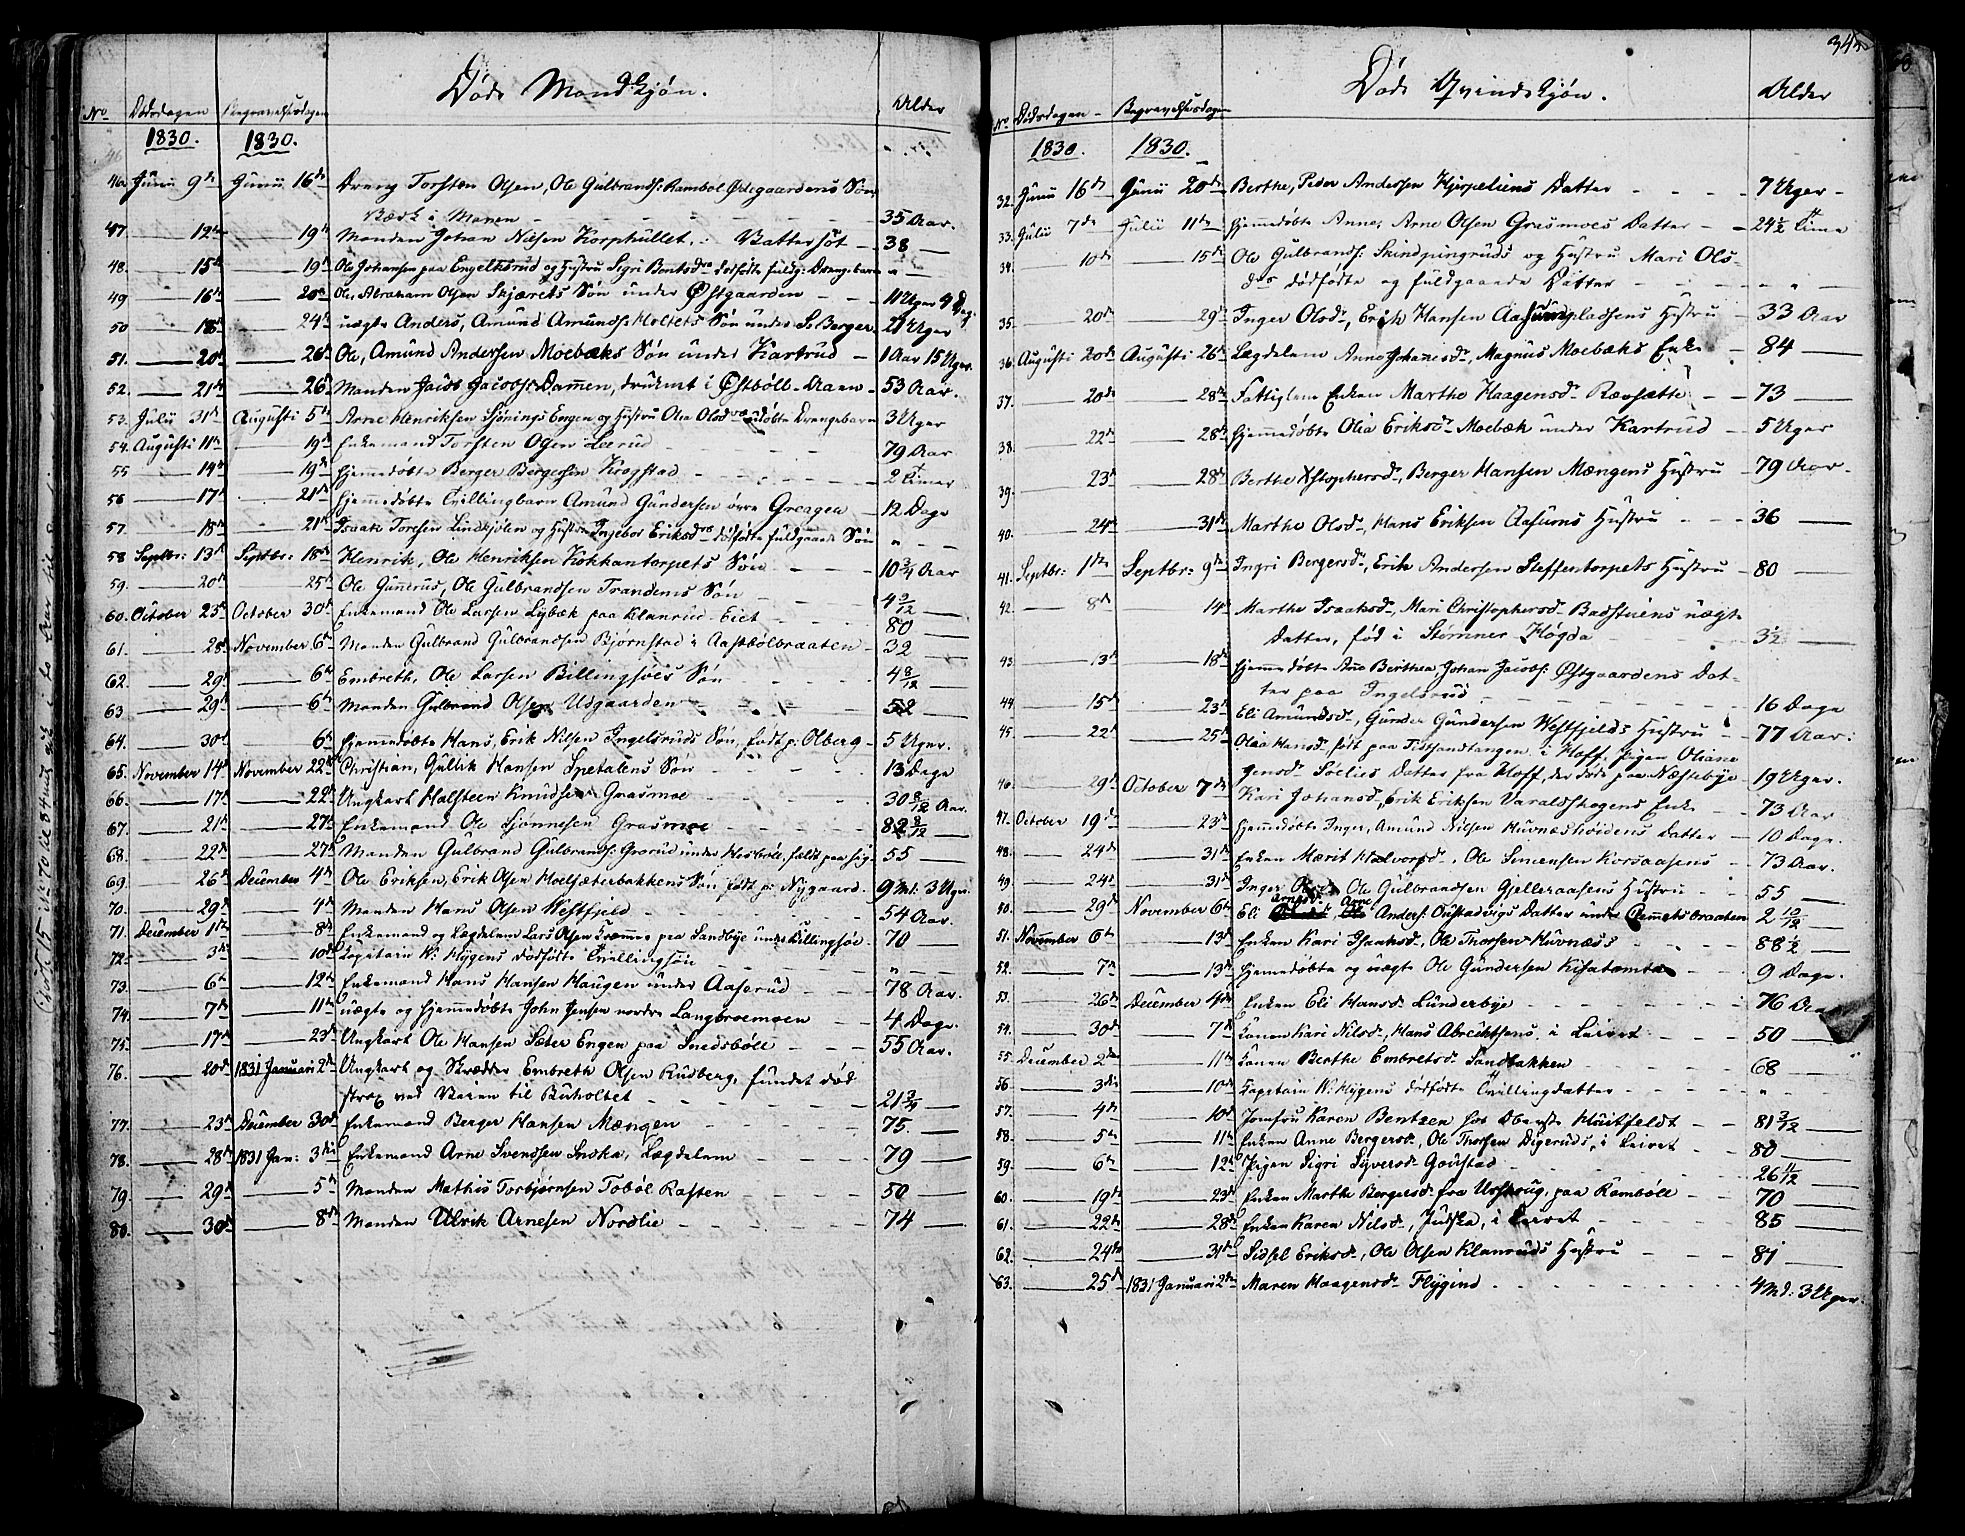 Døde Mandkjøn.
No Dødsdagen Begravelsesdagen Alder
1830. 1830.
46 Junii 9de Junii 16de Dreng Torsten Olsen, Ole Gulbrands: Rambøl Østgaardens Søn,
i Manen - - - 35 Aar.
47 — 12te — 19de Manden Johan Nilsen Korphullet, : Vattersot - 38 —
48. — 15de — 19de Ole Johansen paa Engelsrud og Hustru Sigri Bentsdr dødfødte fuldg: Drengebarn "
49 — 16de — 20de Ole, Abraham Olsen Skjærets Søn under Østgaarden - - 11 Uger 4 Dag
50 — 18de — 24de uægte Anders, Amund Amunds: Holtets Søn under S: Berger - 21 Uger
51. — 20de — 26de Ole, Amund Andersen Moebæks Søn under Kartrud - 1 Aar 15 Uger
52. — 21de — 26de Manden Jacob Jacobs: Dammen, druknet i Østbøll-Aaen - 53 Aar.
53. Julii 31te Augusti 5te Arne Henriksen Sjønings Engen og Hustru Olia Olsdr udøbte Drengebarn 3 Uger
54. Augusti 11te — 19de Enkemand Torsten Olsen Leerud - - 79 Aar
55 — 14de — 19de hjemmedøbte Berger Bergersen Krogstad - - 2 Timer
56 — 17de — 21de hjemmedøbte Tvillingbarn Amund Gundersen øvre Greagen - 12 Dage
57. — 18de — 21de Isaak Toresen Lindkjølen og Hustru Ingebor Eriksdr dødfødte fuldgaaende Søn "
58 Septbr: 13de Septbr: 18de Henrik, Ole Henriksen Kokkentorpets Søn - - 10 3/4 Aar
59. — 20de — 25de Ole Gunerud, Ole Gulbrandsen Trandems Søn - - 4 9/12 —
60. October 23de October 30te Enkemand Ole Larsen Lybæk paa Klanrud-Eiet - - 80 —
61. — 28de November 6te Manden Gulbrand Gulbrandsen Bjørnstad i Aastbølbraaten - 32
62. — 29de — 6te Embreth, Ole Larsen Billingsøes Søn - - 4 8/12 —
63 — 29de — 6te Manden Gulbrand Olsen Udgaarden - - 52 —
64. — 30te — 6te hjemmedøbte Hans, Erik Nilsen Ingelsruds Søn, født p: Olberg - 5 Uger.
65. November 14de November 22de Christian, Gullik Hansen Spetalens Søn - - 13 Dage
66. — 17de — 22de Ungkarl Halsteen Knudsen Grasmoe - - 30 8/12 Aar.
67. — 21de — 27de Enkemand Ole Sjønnesen Grasmoe - - 82 8/12 —
68. — 22de — 27de Manden Gulbrand Gulbrands: Grorud under Hesbøl, - 55 —
69. — 26de December 4de Ole Eriksen, Erik Olsen Moelsæterbakkens Søn født p: Nygaard. 9 Md: 3 Uger.
70. — 29de — 4de Manden Hans Olsen Westfjeld - - 54 Aar.
71. December 1ste — 8de Enkemand og Lægdelem Lars Olsen Kræmmer paa Sandbye under Billingsøe - 70 —
72. — 3die — 10de Capitain W: Hygens dødfødte Tvillingsøn - - "
73. — 6te — 12te Enkemand Hans Hansen Haugen under Aaserud - - 78 Aar.
74. — 7de — 11te uægte og hjemmedøbte John Jensen nordre Langbroemoen - 4 Dage.
75. — 17de — 23de Ungkarl Ole Hansen Sæter Engen paa Snedsbøll - - 55 Aar.
76. — 20de 1831 Januari 2den Ungkarl og Skrædder Embreth Olsen Rudberg, fundet død
strax ved Veien til Buholtet - - 21 3/4 —
77. — 23de December 30te Enkemand Berger Hansen Mængen - - 75. —
78. — 28de 1831 Jan: 3die Enkemand Arne Svendsen Snska, Lægdelem - - 79 —
79 — 29de — 5te Manden Mathis Torbjørnsen Tobøl Rasten - - 50 —
80. — 30te — 8de Manden Ulrik Arnesen Nordlie - - 74 —
343
Døde Qvindekjøn.
No Dødsdagen - Begravelsesdagen Alder
1830. 1830.
32. Junii 16de Junii 20de Berthe, Peder Andersen Hjerpeliens Datter - - 7 Uger -
33. Julii 7de Julii 11te hjemmedøbte Anne, Arne Olsen Grasmoes Datter - 24 1/2 Time
34. — 10de — 15de Ole Gulbrands: Skindpingruds og Hustru Mari Ols-
dr dødfødte og fuldgaaende Datter - - "
35. — 20de — 29de Inger Olsdr, Erik Hansen Aasumpladsens Hustru - 33 Aar
36. Augusti 20de Augusti 26de Lægdelem Anne Johanesdr, Magnus Moebæks Enke - 84 —
37. — 20de — 28de Fattiglem Enken Marthe Haagensdr Ravsætte - - 73 —
38. — 22de — 28de hjemmedøbte Olia Eriksdr Moebæk under Kartrud - 5 Uger
39. — 23de — 28de Berthe Xstophersdr, Berger Hansen Mængens Hustru - 79 Aar.
40. — 24de — 31te Marthe Olsdr, Hans Eriksen Aasums Hustru - - 36 —
41. Septbr: 1ste Septbr: 9de Ingri Bergersdr, Erik Andersen Steffentorpets Hustru - 80 —
42. — 8de — 14de Marthe Isaaksdr, Mari Christophersdr Badstuens uægte
Datter, fød i Stømner Høgda - - 3 1/2 —
43. — 13de — 18de hjemmedøbte Ane Berthea, Johan Jacobs: Østgaardens Dat-
ter paa Ingelsrud - - 16 Dage
44 — 15de — 23de Eli Amundsdr, Gunder Gundersen Westfjelds Hustru - 77 Aar:
45. — 22de — 25de Olia Hansdr født paa Tistsandtangen i Hoff, Pigen Oliane
gensdr Soelies Datter fra Hoff, der døde paa Næssebye - 19 Uger.
46. — 29de October 7de Kari Johansdr, Erik Eriksen Varaldskogens Enke - 73 Aar
47. October 19de — 23de hjemmedøbte Inger, Amund Nilsen Huvnæshøidens Datter - 10 Dage.
48. — 24de — 31te Enken Marit Halvorsdr, Ole Simensen Korsaasens - 73 Aar.
49. — 24de — 31te Inger Olsdr Ole Gulbrandsen Gjelleraasens Hustru - 55 —
50. — 29de November 6te Eli Arnesdr Arne Anders: Oustadvigs Datter under braaten 2 10/12
51. November 6te — 13de Enken Kari Isaaksdr, Ole Thorsen Huvnæss - - 88 1/2 —
52. — 7de — 13de hjemmedøbte og uægte Ole Gundersen Kisatomta - 9 Dage.
53. — 26de December 4de Enken Eli Hansdr Lunderbye - - 76 Aar
54. — 30te — 7de Konen Kari Nilsdr, Hans Abrechtsens, i Leiret - 50 —
55. December 2den — 11te Konen Berthe Embretsdr Sandbakken - 68 —
56 — 3die — 10de Kapitain W: Hygens dødfødte Tvillingdatter - - "
57. — 4de — 10de Jomfru Karen Bentzen hos Oberste Huitfeldt - - 81 3/12 —
58. — 5te — 11te Enken Anne Bergersdr, Ole Thorsen Digeruds, i Leiret - 80 —
59. — 6te — 12te Pigen Sigri Syversdr Goustad - - 26 1/12 —
60. — 19de — 23de Enken Marthe Bergersdr fra Urskoug, paa Rambøll - 70 —
61. — 22de — 28de Enken Karen Nilsdr, Judska, i Leiret - 85 —
62. — 24de — 31te Sidsel Eriksdr, Ole Olsen Klanruds Hustru - - 81 —
63. — 25de 1831 Januari 2den Maren Haagensdr Flygind - - 4 Md: 3 Uger.